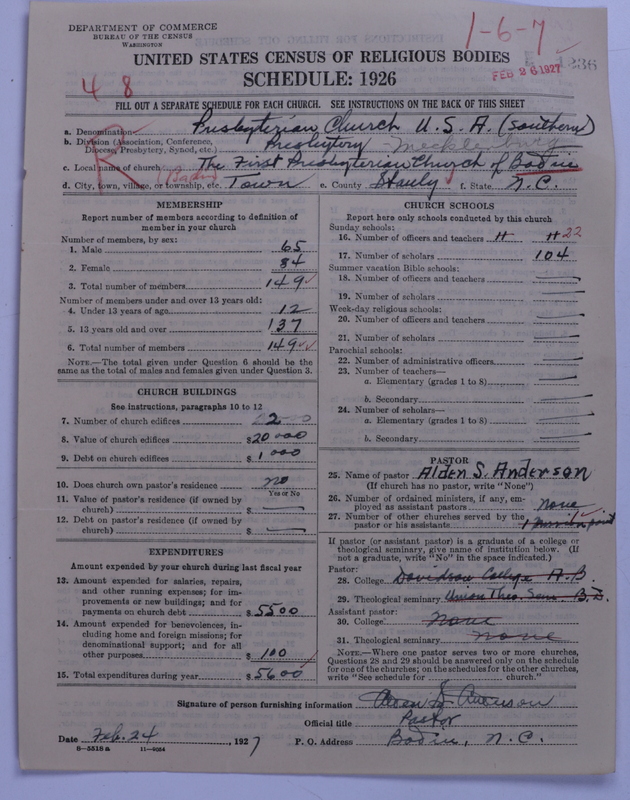 DEPARTMENT OF COMMERCE
BUREAU OF THE CENSUS
WASHINGTON
1-6-7
FEB 26 1927
1236
UNITED STATES CENSUS OF RELIGIOUS BODIES
SCHEDULE: 1926
4 8
FILL OUT A SEPARATE SCHEDULE FOR EACH CHURCH. SEE INSTRUCTIONS ON THE BACK OF THIS SHEET
R
a. Denomination Presbyterian Church U.S.A. (Southern)
b. Division (Association, Conference, Diocese, Presbytery, Synod, etc.) Presbytery Mecklenburg
c. Local name of church The First Presbyterian Church of Badin
(Badin)
d. City, town, village, or township, etc. Town e. County Stanly f. State N.C.
MEMBERSHIP
Report number of members according to definition of member in your church
Number of members, by sex:
1. Male 65
2. Female 84
3. Total number of members 149
Number of members under and over 13 years old:
4. Under 13 years of age 12
5. 13 years old and over 137
6. Total number of members 149
NOTE.—The total given under Question 6 should be the same as the total of males and females given under Question 3.
CHURCH BUILDINGS
See instructions, paragraphs 10 to 12
7. Number of church edifices 2
8. Value of church edifices $20000
9. Debt on church edifices $1000
10. Does church own pastor's residence no
Yes or No
11. Value of pastor's residence (if owned by church) $
12. Debt on pastor's residence (if owned by church) $
EXPENDITURES
Amount expended by your church during last fiscal year
13. Amount expended for salaries, repairs, and other running expenses; for improvements or new buildings; and for payments on church debt $5500
14. Amount expended for benevolences, including home and foreign missions; for denominational support; and for all other purposes $100
15. Total expenditures during year $5600
CHURCH SCHOOLS
Report here only schools conducted by this church
Sunday schools:
16. Number of officers and teachers 22
17. Number of scholars 104
Summer vacation Bible schools:
18. Number of officers and teachers
19. Number of scholars
Week-day religious schools:
20. Number of officers and teachers
21. Number of scholars
Parochial schools:
22. Number of administrative officers
23. Number of teachers—
a. Elementary (grades 1 to 8)
b. Secondary
24. Number of scholars—
a. Elementary (grades 1 to 8)
b. Secondary
PASTOR
25. Name of pastor Alden S. Anderson
(If church has no pastor, write "None")
26. Number of ordained ministers, if any, employed as assistant pastors none
27. Number of other churches served by the pastor or his assistants 1 mission point
If pastor (or assistant pastor) is a graduate of a college or theological seminary, give name of institution below. (If not a graduate, write "No" in the space indicated.)
Pastor:
28. College Davidson College A.B.
29. Theological seminary Union Theo. Sem. B.D.
Assistant pastor:
30. College none
31. Theological seminary none
NOTE.—Where one pastor serves two or more churches, Questions 28 and 29 should be answered only on the schedule for one of the churches; on the schedules for the other churches, write "See schedule for church."
Signature of person furnishing information Alden S. Anderson
Official title Pastor
Date Feb. 24, 1927 P. O. Address Badin, N.C.
8—5518 a 11—9084